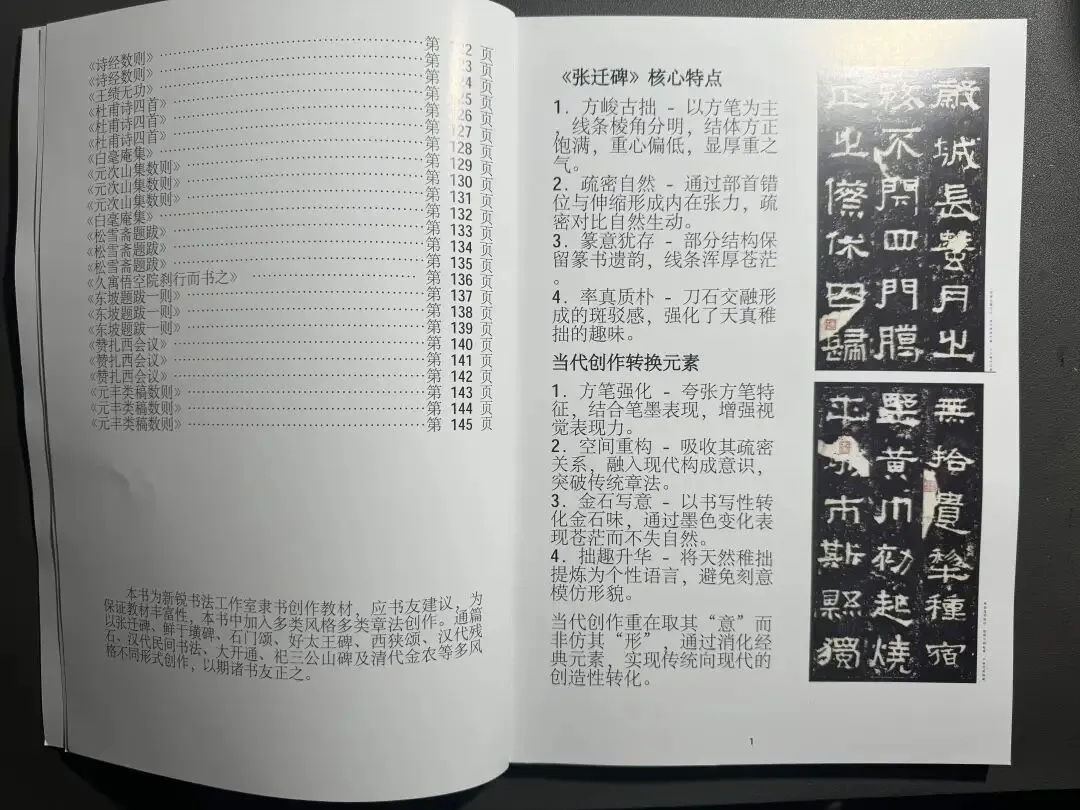 《诗经数则》……第 122 页
《诗经数则》……第 123 页
《王绩无功》……第 124 页
《杜甫诗四首》……第 125 页
《杜甫诗四首》……第 126 页
《杜甫诗四首》……第 127 页
《白毫庵集》……第 128 页
《元次山集数则》……第 129 页
《元次山集数则》……第 130 页
《元次山集数则》……第 131 页
《白毫庵集》……第 132 页
《松雪斋题跋》……第 133 页
《松雪斋题跋》……第 134 页
《松雪斋题跋》……第 135 页
《久寓悟空院刹行而书之》……第 136 页
《东坡题跋一则》……第 137 页
《东坡题跋一则》……第 138 页
《东坡题跋一则》……第 139 页
《赞扎西会议》……第 140 页
《赞扎西会议》……第 141 页
《赞扎西会议》……第 142 页
《元丰类稿数则》……第 143 页
《元丰类稿数则》……第 144 页
《元丰类稿数则》……第 145 页
本书为新锐书法工作室隶书创作教材，应书友建议，为
保证教材丰富性，本书中加入多类风格多类章法创作。通篇
以张迁碑、鲜于璜碑、石门颂、好太王碑、西狭颂、汉代残
石、汉代民间书法、大开通、祀三公山碑及清代金农等多风
格不同形式创作，以期诸书友正之。
《张迁碑》核心特点
1. 方峻古拙 - 以方笔为主
，线条棱角分明，结体方正
饱满，重心偏低，显厚重之
气。
2. 疏密自然 - 通过部首错
位与伸缩形成内在张力，疏
密对比自然生动。
3. 篆意犹存 - 部分结构保
留篆书遗韵，线条浑厚苍茫
。
4. 率真质朴 - 刀石交融形
成的斑驳感，强化了天真稚
拙的趣味。
当代创作转换元素
1. 方笔强化 - 夸张方笔特
征，结合笔墨表现，增强视
觉表现力。
2. 空间重构 - 吸收其疏密
关系，融入现代构成意识，
突破传统章法。
3. 金石写意 - 以书写性转
化金石味，通过墨色变化表
现苍茫而不失自然。
4. 拙趣升华 - 将天然稚拙
提炼为个性语言，避免刻意
模仿形貌。
当代创作重在取其“意”而
非仿其“形”，通过消化经
典元素，实现传统向现代的
创造性转化。
穀城長蠶月之
務不閉四門臘
正之僚休囚歸
無拾遺犂種宿
野黃巾初起燒
平城市斯縣獨
1